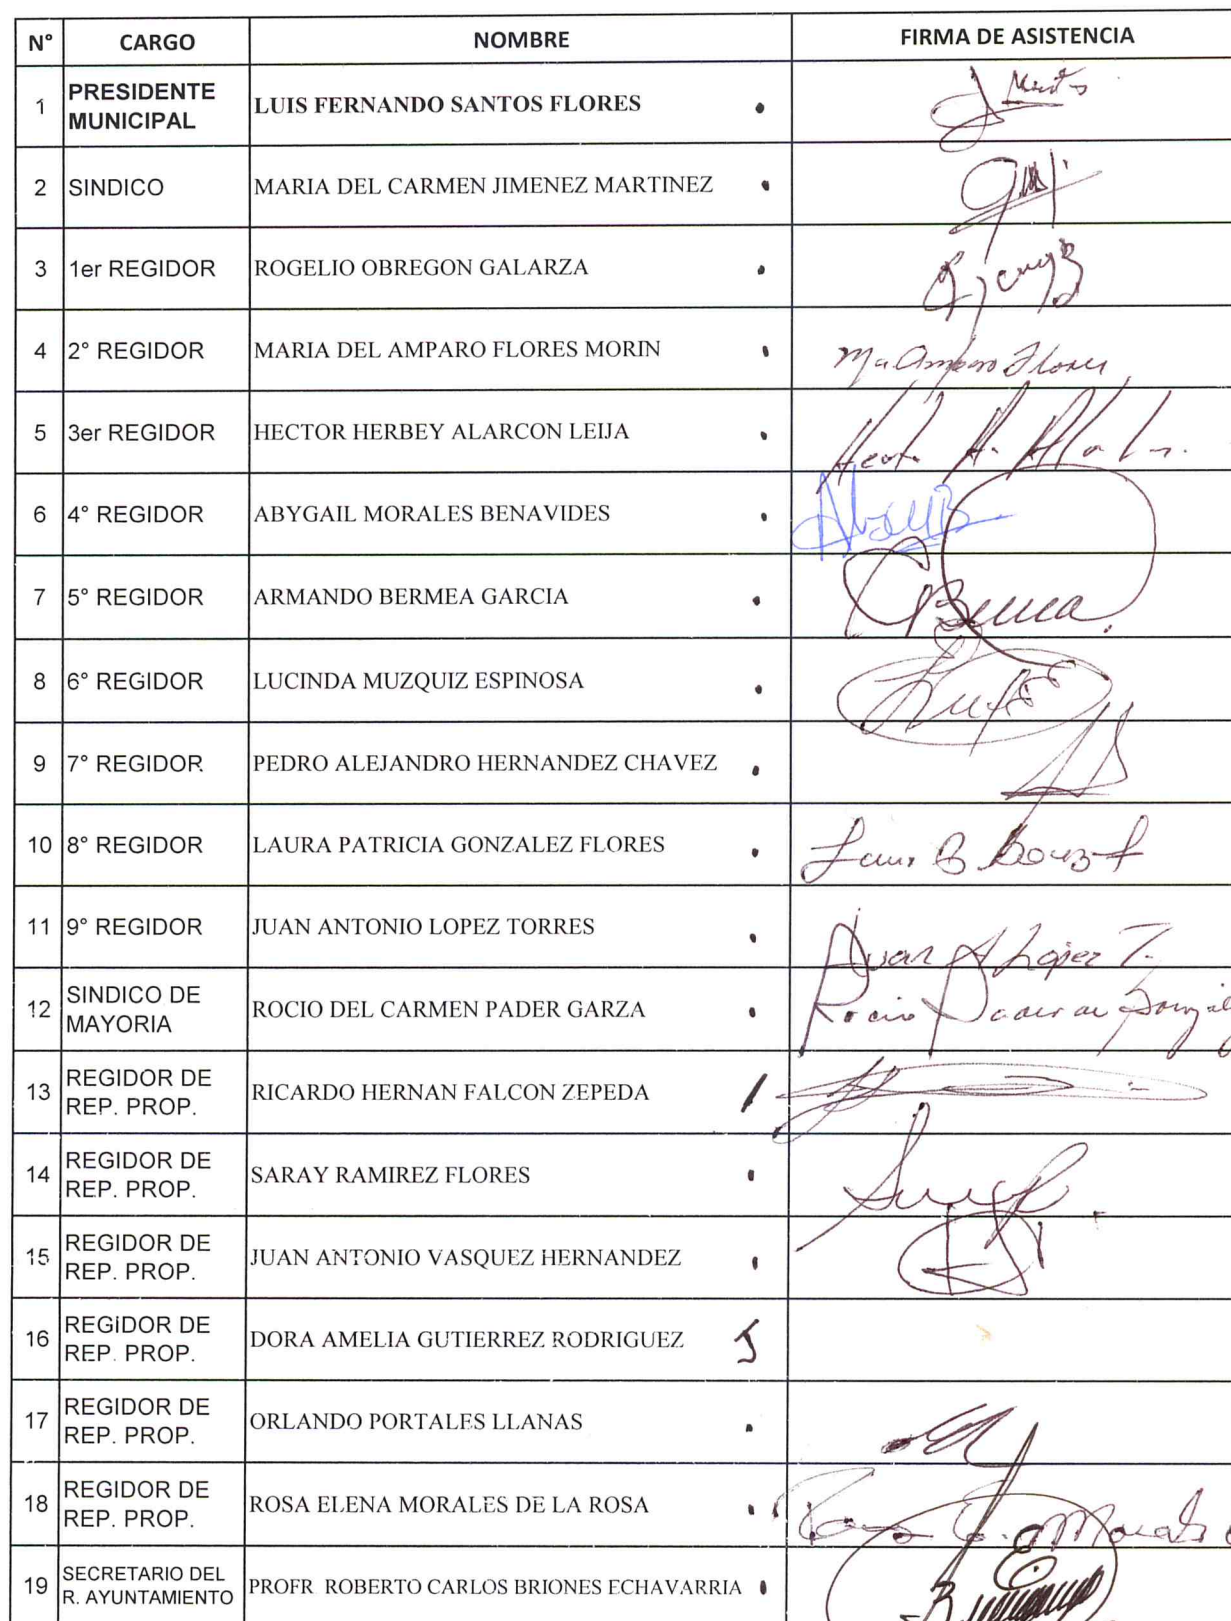 N° CARGO NOMBRE FIRMA DE ASISTENCIA
1 PRESIDENTE MUNICIPAL LUIS FERNANDO SANTOS FLORES
2 SINDICO MARIA DEL CARMEN JIMENEZ MARTINEZ
3 1er REGIDOR ROGELIO OBREGON GALARZA
4 2° REGIDOR MARIA DEL AMPARO FLORES MORIN Ma Amparo Flores
5 3er REGIDOR HECTOR HERBEY ALARCON LEIJA
6 4° REGIDOR ABYGAIL MORALES BENAVIDES
7 5° REGIDOR ARMANDO BERMEA GARCIA
8 6° REGIDOR LUCINDA MUZQUIZ ESPINOSA
9 7° REGIDOR PEDRO ALEJANDRO HERNANDEZ CHAVEZ
10 8° REGIDOR LAURA PATRICIA GONZALEZ FLORES
11 9° REGIDOR JUAN ANTONIO LOPEZ TORRES Juan A Lopez T.
12 SINDICO DE MAYORIA ROCIO DEL CARMEN PADER GARZA Rocio
13 REGIDOR DE REP. PROP. RICARDO HERNAN FALCON ZEPEDA
14 REGIDOR DE REP. PROP. SARAY RAMIREZ FLORES
15 REGIDOR DE REP. PROP. JUAN ANTONIO VASQUEZ HERNANDEZ
16 REGIDOR DE REP. PROP. DORA AMELIA GUTIERREZ RODRIGUEZ J
17 REGIDOR DE REP. PROP. ORLANDO PORTALES LLANAS
18 REGIDOR DE REP. PROP. ROSA ELENA MORALES DE LA ROSA
19 SECRETARIO DEL R. AYUNTAMIENTO PROFR ROBERTO CARLOS BRIONES ECHAVARRIA